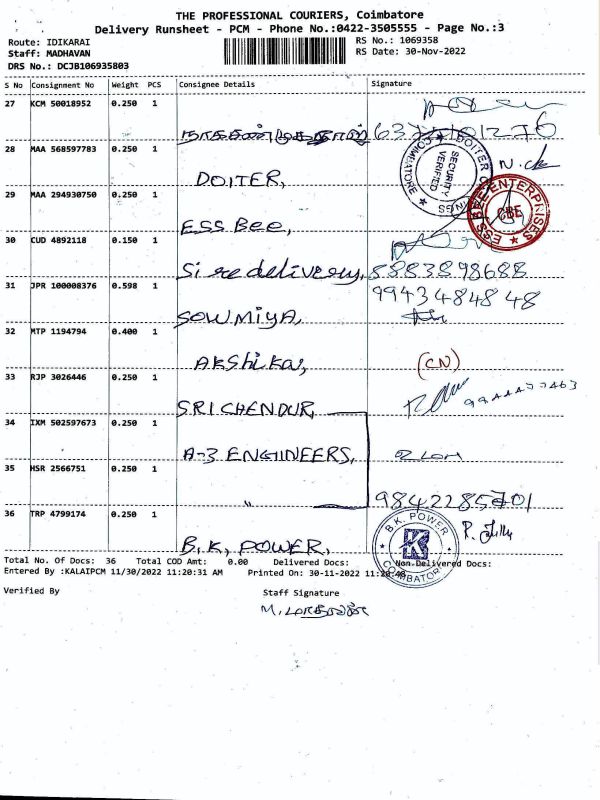 THE PROFESSIONAL COURIERS, Coimbatore
Delivery Runsheet - PCM - Phone No.:0422-3505555 - Page No.:3
Route: IDIKARAI
Staff: MADHAVAN
DRS No.: DCJB106935803
RS No.: 1069358
RS Date: 30-Nov-2022
S No Consignment No Weight PCS Consignee Details Signature
27 KCM 50018952 0.250 1
28 MAA 568597783 0.250 1
DOITER,
COIMBATORE SECURITY VERIFIED
29 MAA 294930750 0.250 1
ESS Bee,
ESS BEE ENTERPRISES CBE
30 CUD 4892118 0.150 1
delivery, 8883898688
31 JPR 100008376 0.598 1
9943484848
SOWMIYA,
32 MTP 1194794 0.400 1
AKShika, (CN)
33 RJP 3026446 0.250 1
SRI CHENDUR,
34 IXM 502597673 0.250 1
A-3 ENGINEERS,
35 HSR 2566751 0.250 1
" 9842285701
36 TRP 4799174 0.250 1
B.K. POWER,
B.K. POWER COIMBATORE
Total No. Of Docs: 36 Total COD Amt: 0.00 Delivered Docs: Non-Delivered Docs:
Entered By :KALAIPCM 11/30/2022 11:20:31 AM Printed On: 30-11-2022
Verified By Staff Signature